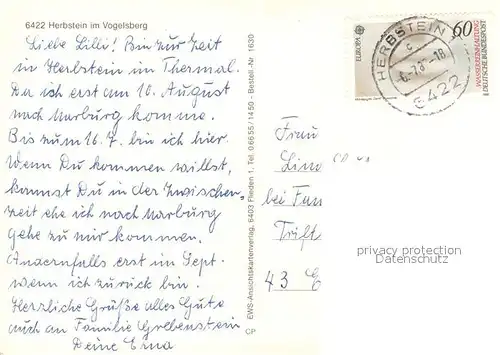 6422 Herbstein im Vogelsberg
Liebe Lilli! Bin zur Zeit
in Herbstein im Thermal.
Da ich erst am 10. August
nach Marburg komme.
Bis zum 16.7. bin ich hier.
Wenn Du kommen willst,
kannst Du in der Zwischen-
zeit ehe ich nach Marburg
gehe zu mir kommen.
Andernfalls erst im Sept.
wenn ich zurück bin.
Herzliche Grüße alles Gute
auch an Familie Grebenstein
Deine Erna
EWS-Ansichtskartenverlag, 6403 Flieden 1, Tel. 0 66 55 / 14 50 - Bestell.-Nr. 1630
CP
EUROPA
60
WASSERREINHALTUNG
DEUTSCHE BUNDESPOST
HERBSTEIN
c
-18
6422
Frau
bei Fam
Trift
43 E
privacy protection
Datenschutz